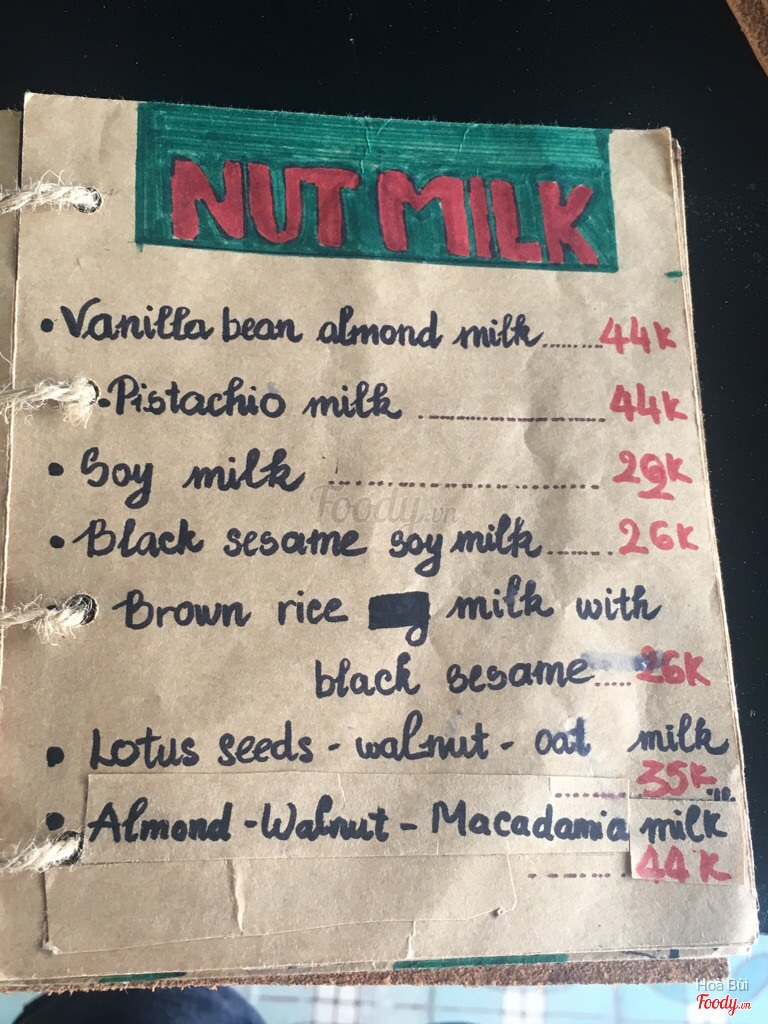 NUT MILK
• Vanilla bean almond milk ....... 44K
• Pistachio milk .................... 44K
• Soy milk ........................... K
• Black sesame soy milk ....... 26K
Brown rice milk with
black sesame ..... 26K
• Lotus seeds - walnut - oat milk
......... 35K
• Almond - Walnut - Macadamia milk
......... 44K
Foody.vn
Hoà Bùi
Foody.vn